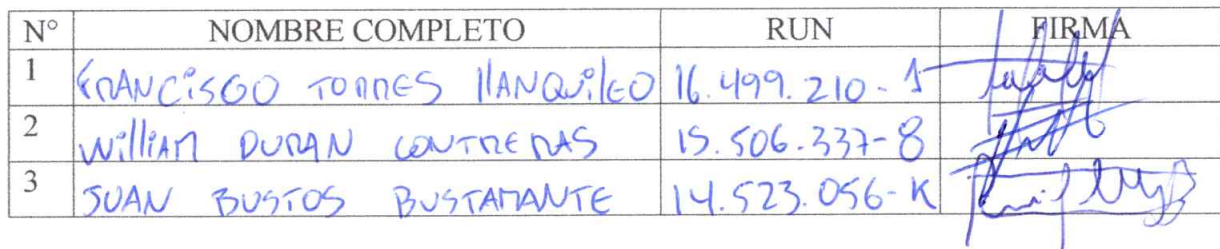 N° NOMBRE COMPLETO RUN FIRMA
1 FRANCISCO TORRES LLANQUILEO 16.499.210-1
2 WILLIAM DURAN CONTRERAS 15.506.337-8
3 JUAN BUSTOS BUSTAMANTE 14.523.056-K